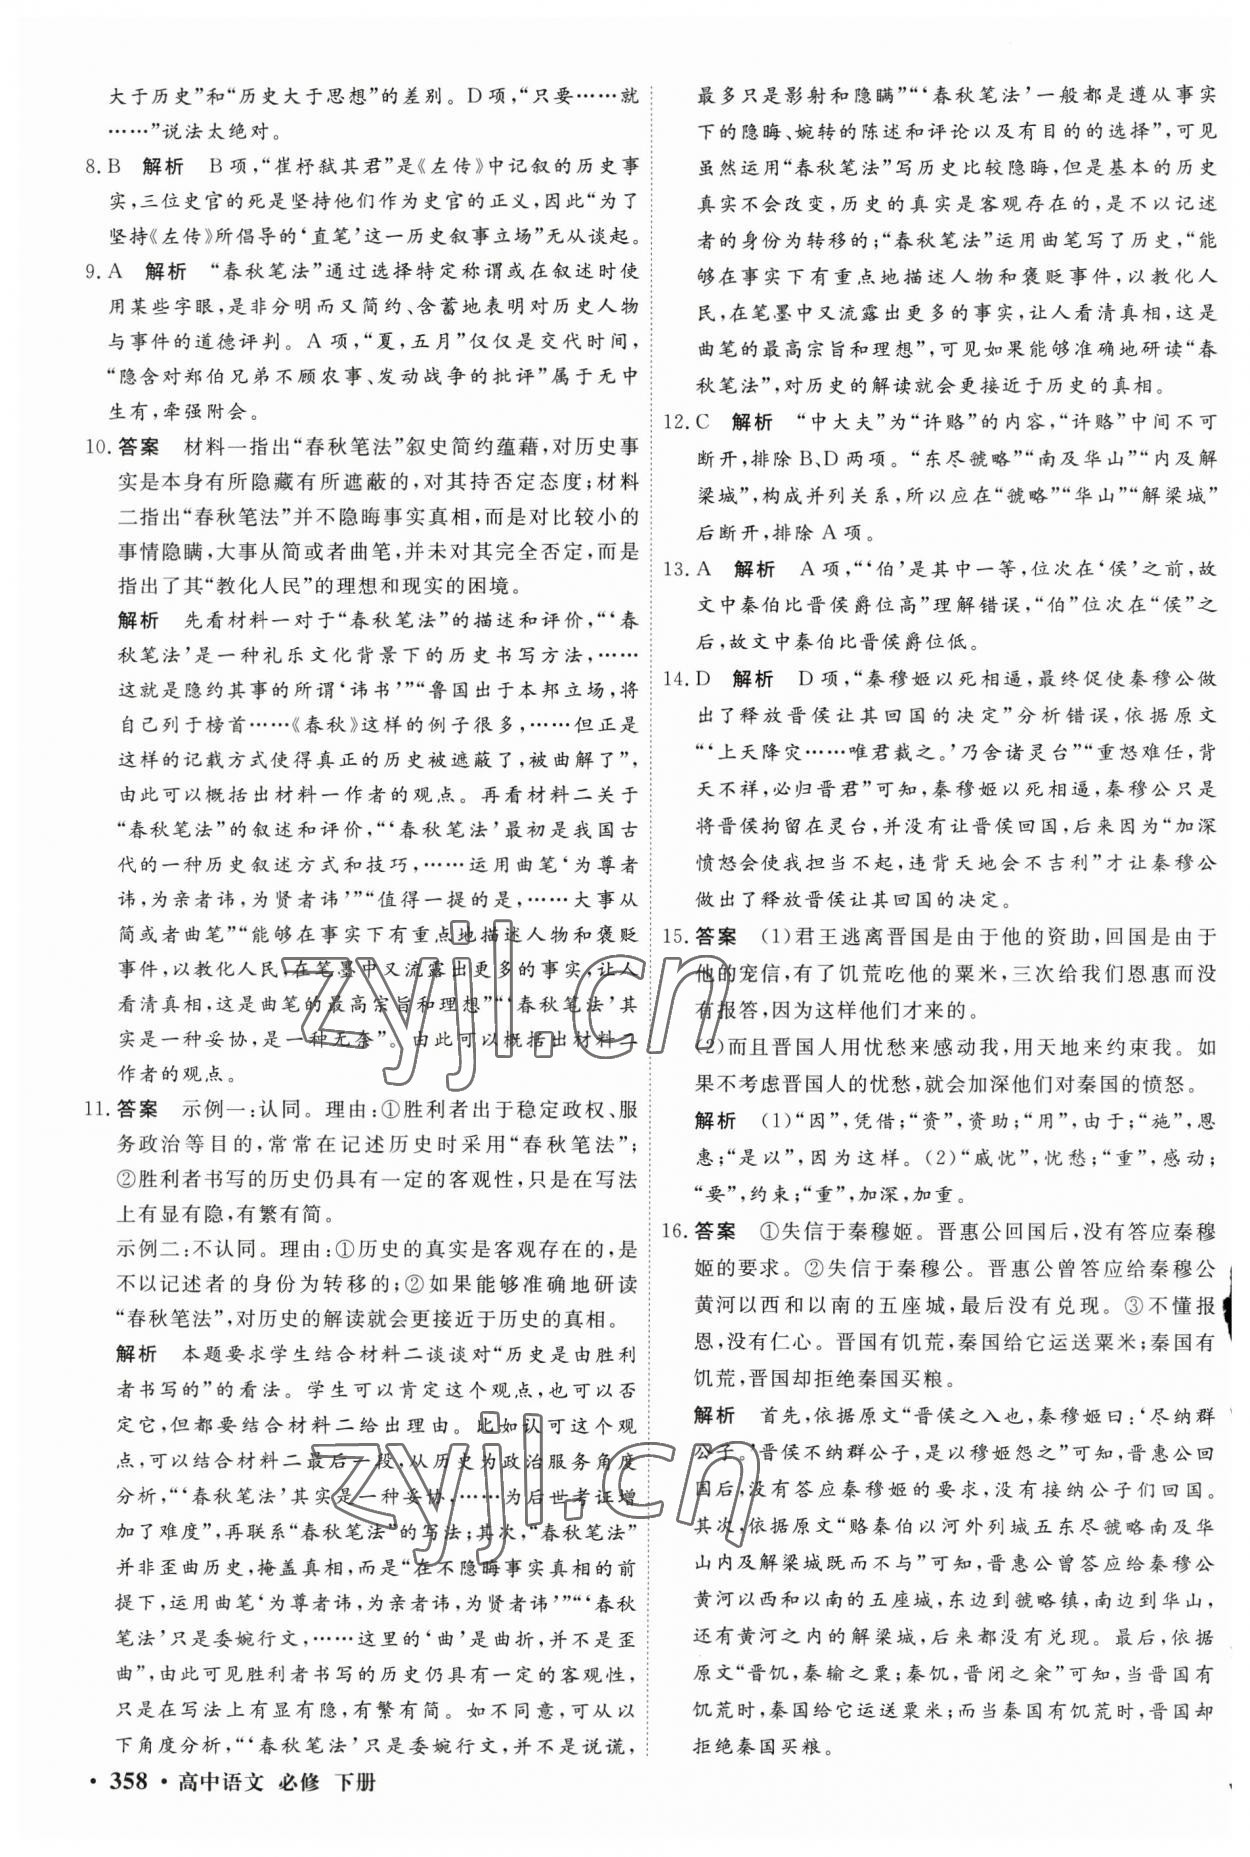 大于历史”和“历史大于思想”的差别。D项,“只要……就
……”说法太绝对。
8. B 解析 B项,“崔杼弑其君”是《左传》中记叙的历史事
实,三位史官的死是坚持他们作为史官的正义,因此“为了
坚持《左传》所倡导的‘直笔’这一历史叙事立场”无从谈起。
9. A 解析 “春秋笔法”通过选择特定称谓或在叙述时使
用某些字眼,是非分明而又简约、含蓄地表明对历史人物
与事件的道德评判。A项,“夏,五月”仅仅是交代时间,
“隐含对郑伯兄弟不顾农事、发动战争的批评”属于无中
生有,牵强附会。
10. 答案 材料一指出“春秋笔法”叙史简约蕴藉,对历史事
实是本身有所隐藏有所遮蔽的,对其持否定态度;材料
二指出“春秋笔法”并不隐晦事实真相,而是对比较小的
事情隐瞒,大事从简或者曲笔,并未对其完全否定,而是
指出了其“教化人民”的理想和现实的困境。
解析 先看材料一对于“春秋笔法”的描述和评价,“‘春
秋笔法’是一种礼乐文化背景下的历史书写方法,……
这就是隐约其事的所谓‘讳书’”“鲁国出于本邦立场,将
自己列于榜首……《春秋》这样的例子很多,……但正是
这样的记载方式使得真正的历史被遮蔽了,被曲解了”,
由此可以概括出材料一作者的观点。再看材料二关于
“春秋笔法”的叙述和评价,“‘春秋笔法’最初是我国古
代的一种历史叙述方式和技巧,……运用曲笔‘为尊者
讳,为亲者讳,为贤者讳’”“值得一提的是,……大事从
简或者曲笔”“能够在事实下有重点地描述人物和褒贬
事件,以教化人民,在笔墨中又流露出更多的事实,让人
看清真相,这是曲笔的最高宗旨和理想”“‘春秋笔法’其
实是一种妥协,是一种无奈”。由此可以概括出材料二
作者的观点。
11. 答案 示例一:认同。理由:①胜利者出于稳定政权、服
务政治等目的,常常在记述历史时采用“春秋笔法”;
②胜利者书写的历史仍具有一定的客观性,只是在写法
上有显有隐,有繁有简。
示例二:不认同。理由:①历史的真实是客观存在的,是
不以记述者的身份为转移的;②如果能够准确地研读
“春秋笔法”,对历史的解读就会更接近于历史的真相。
解析 本题要求学生结合材料二谈谈对“历史是由胜利
者书写的”的看法。学生可以肯定这个观点,也可以否
定它,但都要结合材料二给出理由。比如认可这个观
点,可以结合材料二最后一段,从历史为政治服务角度
分析,“‘春秋笔法’其实是一种妥协,……为后世考证增
加了难度”,再联系“春秋笔法”的写法;其次,“春秋笔法”
并非歪曲历史,掩盖真相,而是“在不隐晦事实真相的前
提下,运用曲笔‘为尊者讳,为亲者讳,为贤者讳’”“‘春秋
笔法’只是委婉行文,……这里的‘曲’是曲折,并不是歪
曲”,由此可见胜利者书写的历史仍具有一定的客观性,
只是在写法上有显有隐,有繁有简。如不同意,可从以
下角度分析,“‘春秋笔法’只是委婉行文,并不是说谎,
最多只是影射和隐瞒”“‘春秋笔法’一般都是遵从事实
下的隐晦、婉转的陈述和评论以及有目的的选择”,可见
虽然运用“春秋笔法”写历史比较隐晦,但是基本的历史
真实不会改变,历史的真实是客观存在的,是不以记述
者的身份为转移的;“春秋笔法”运用曲笔写了历史,“能
够在事实下有重点地描述人物和褒贬事件,以教化人
民,在笔墨中又流露出更多的事实,让人看清真相,这是
曲笔的最高宗旨和理想”,可见如果能够准确地研读“春
秋笔法”,对历史的解读就会更接近于历史的真相。
12. C 解析 “中大夫”为“许赂”的内容,“许赂”中间不可
断开,排除B、D两项。“东尽虢略”“南及华山”“内及解
梁城”,构成并列关系,所以应在“虢略”“华山”“解梁城”
后断开,排除A项。
13. A 解析 A项,“‘伯’是其中一等,位次在‘侯’之前,故
文中秦伯比晋侯爵位高”理解错误,“伯”位次在“侯”之
后,故文中秦伯比晋侯爵位低。
14. D 解析 D项,“秦穆姬以死相逼,最终促使秦穆公做
出了释放晋侯让其回国的决定”分析错误,依据原文
“‘上天降灾……唯君裁之。’乃舍诸灵台”“重怒难任,背
天不祥,必归晋君”可知,秦穆姬以死相逼,秦穆公只是
将晋侯拘留在灵台,并没有让晋侯回国,后来因为“加深
愤怒会使我担当不起,违背天地会不吉利”才让秦穆公
做出了释放晋侯让其回国的决定。
15. 答案 (1)君王逃离晋国是由于他的资助,回国是由于
他的宠信,有了饥荒吃他的粟米,三次给我们恩惠而没
有报答,因为这样他们才来的。
(2)而且晋国人用忧愁来感动我,用天地来约束我。如
果不考虑晋国人的忧愁,就会加深他们对秦国的愤怒。
解析 (1)“因”,凭借;“资”,资助;“用”,由于;“施”,恩
惠;“是以”,因为这样。(2)“戚忧”,忧愁;“重”,感动;
“要”,约束;“重”,加深,加重。
16. 答案 ①失信于秦穆姬。晋惠公回国后,没有答应秦穆
姬的要求。②失信于秦穆公。晋惠公曾答应给秦穆公
黄河以西和以南的五座城,最后没有兑现。③不懂报
恩,没有仁心。晋国有饥荒,秦国给它运送粟米;秦国有
饥荒,晋国却拒绝秦国买粮。
解析 首先,依据原文“晋侯之入也,秦穆姬曰:‘尽纳群
公子。’晋侯不纳群公子,是以穆姬怨之”可知,晋惠公回
国后,没有答应秦穆姬的要求,没有接纳公子们回国。
其次,依据原文“赂秦伯以河外列城五东尽虢略南及华
山内及解梁城既而不与”可知,晋惠公曾答应给秦穆公
黄河以西和以南的五座城,东边到虢略镇,南边到华山,
还有黄河之内的解梁城,后来都没有兑现。最后,依据
原文“晋饥,秦输之粟;秦饥,晋闭之籴”可知,当晋国有
饥荒时,秦国给它运送粟米;而当秦国有饥荒时,晋国却
拒绝秦国买粮。
• 358 • 高中语文 必修 下册
zyjl.cn
zyjl.cn